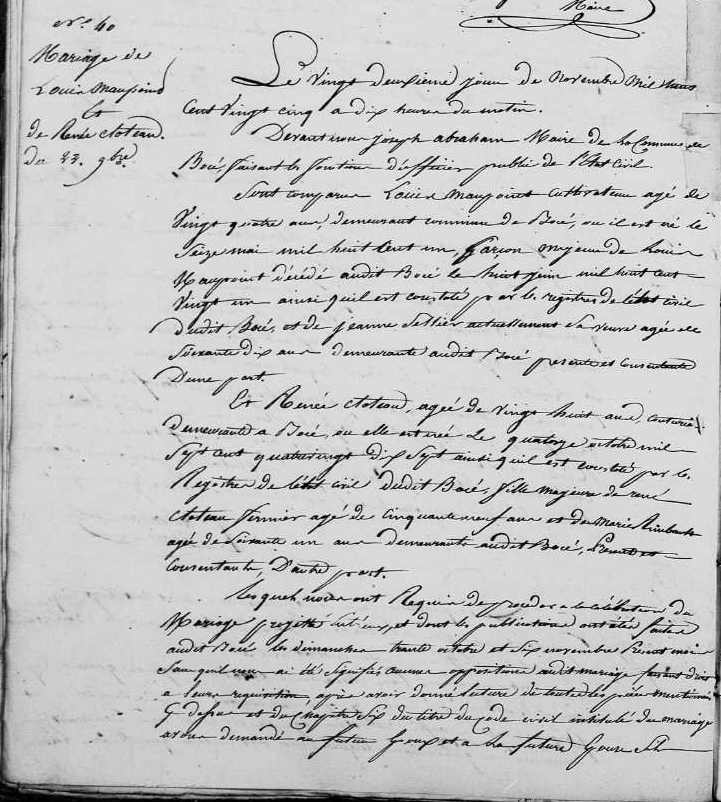 Maire
N.º 40
Mariage de
Louis Maupoint
Et
de Renée cloteau.
du 22. 9bre
Le Vingt deuxieme jour de novembre Mil huit
Cent Vingt cinq a dix heures du matin.
Devant nous joseph abraham Maire de la Commune de
Bocé, faisant les fonctions d'officier public de l'état Civil
Sont comparus Louis Maupoint cultivateur agé de
Vingt quatre ans, demeurant commune de Bocé, ou il est né le
Seize mai mil huit Cent un, garçon majeur de Louis
Maupoint décédé audit Bocé le huit juin mil huit cent
Vingt un ainsi quil est constaté par les registres de l'état civil
dudit Bocé, et de jeanne Sellier actuellement Sa veuve agée de
Soixante dix ans demeurante audit Bocé presente et Consentante
D'une part.
Et Renée cloteau, agée de vingt huit ans,
demeurante a Bocé, ou elle est née Le quatorze octobre mil
Sept cent quatrevingt dix Sept ainsi quil est constaté par les
Registres de l'état civil dudit Bocé, fille majeure de rené
cloteau fermier agé de Cinquante neuf ans et de Marie
agée de Soixante un ans demeurants audit Bocé, Presents et
Consentants, D'autre part.
Lesquels nous ont Requis de proceder a la Célébration du
Mariage projetté entr'eux, et dont les publications ont été faites
audit Bocé les dimanches trente octobre et Six novembre Present mois
Sans quil nous ai été Signifié aucune opposition audit mariage faisant droit
a leurs requisition, après avoir donné lecture de toutes les pièces mentionnés
Cy dessus et du Chapitre Six du titre du Code civil intitulé du mariage
avons demandé au futur Epoux et a La future Epouse S'ils